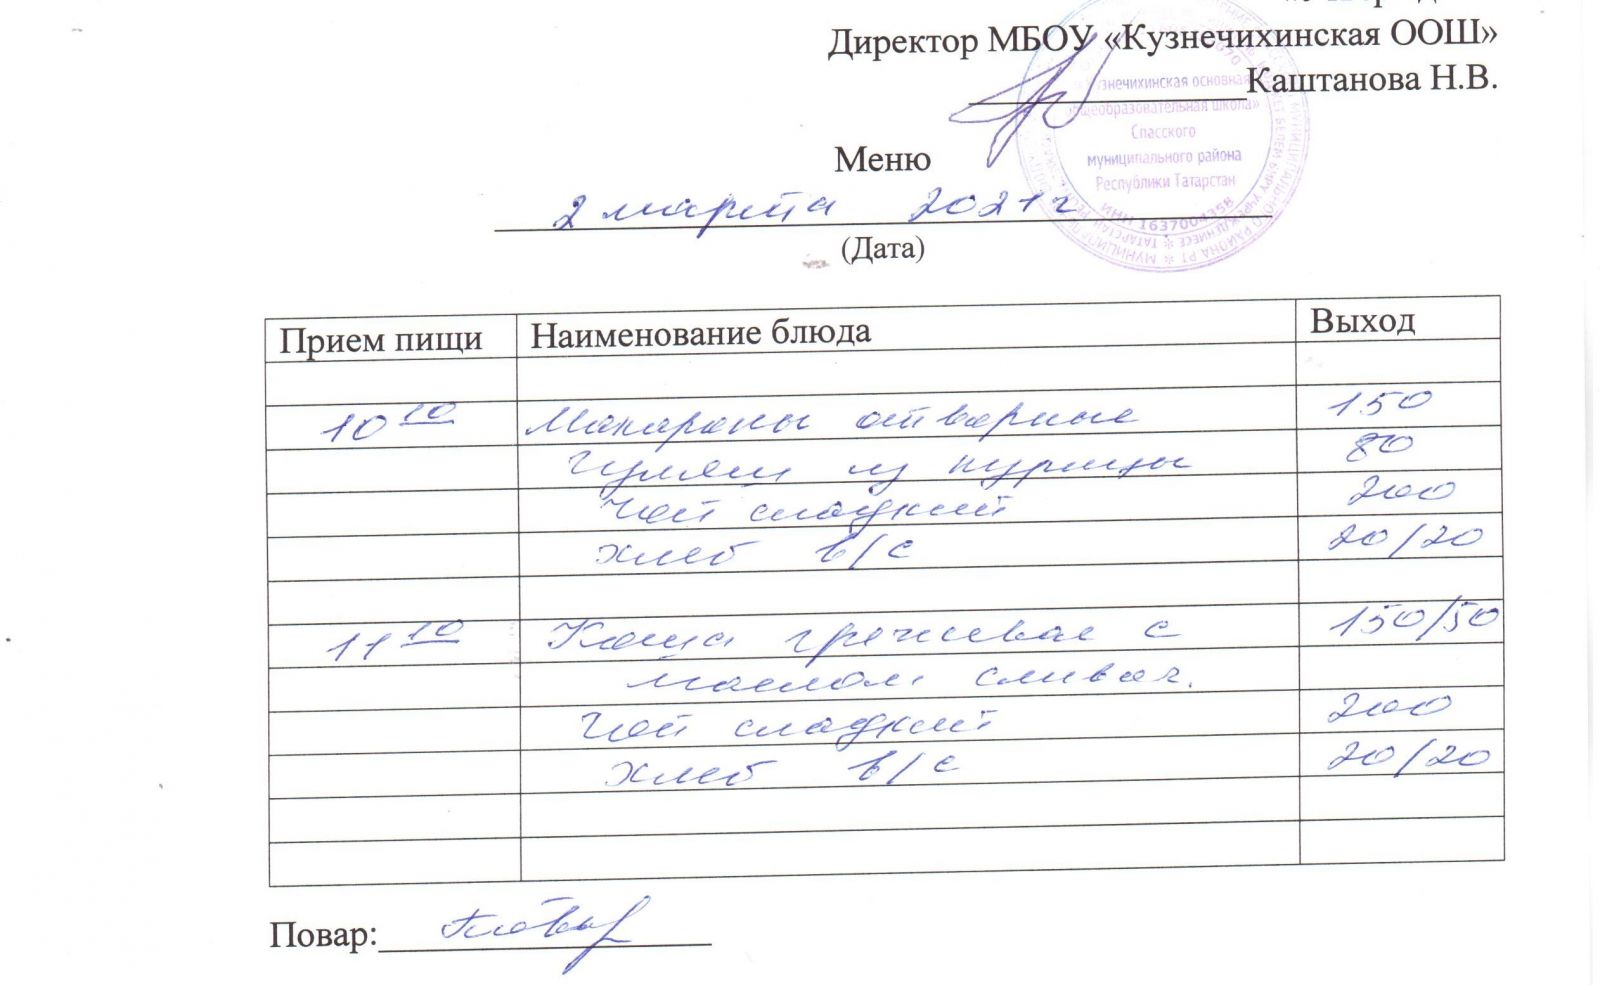 Директор МБОУ «Кузнечихинская ООШ»
Каштанова Н.В.
Кузнечихинская основная
общеобразовательная школа»
Спасского
муниципального района
Республики Татарстан
ИНН 1637004358
Меню
2 марта 2021 г
(Дата)
Прием пищи Наименование блюда Выход
10 10 Макароны отварные 150
Гуляш из курицы 80
Чай сладкий 200
Хлеб в/с 20/20
11 10 Каша гречневая с 150/50
маслом сливоч.
Чай сладкий 200
Хлеб в/с 20/20
Повар: